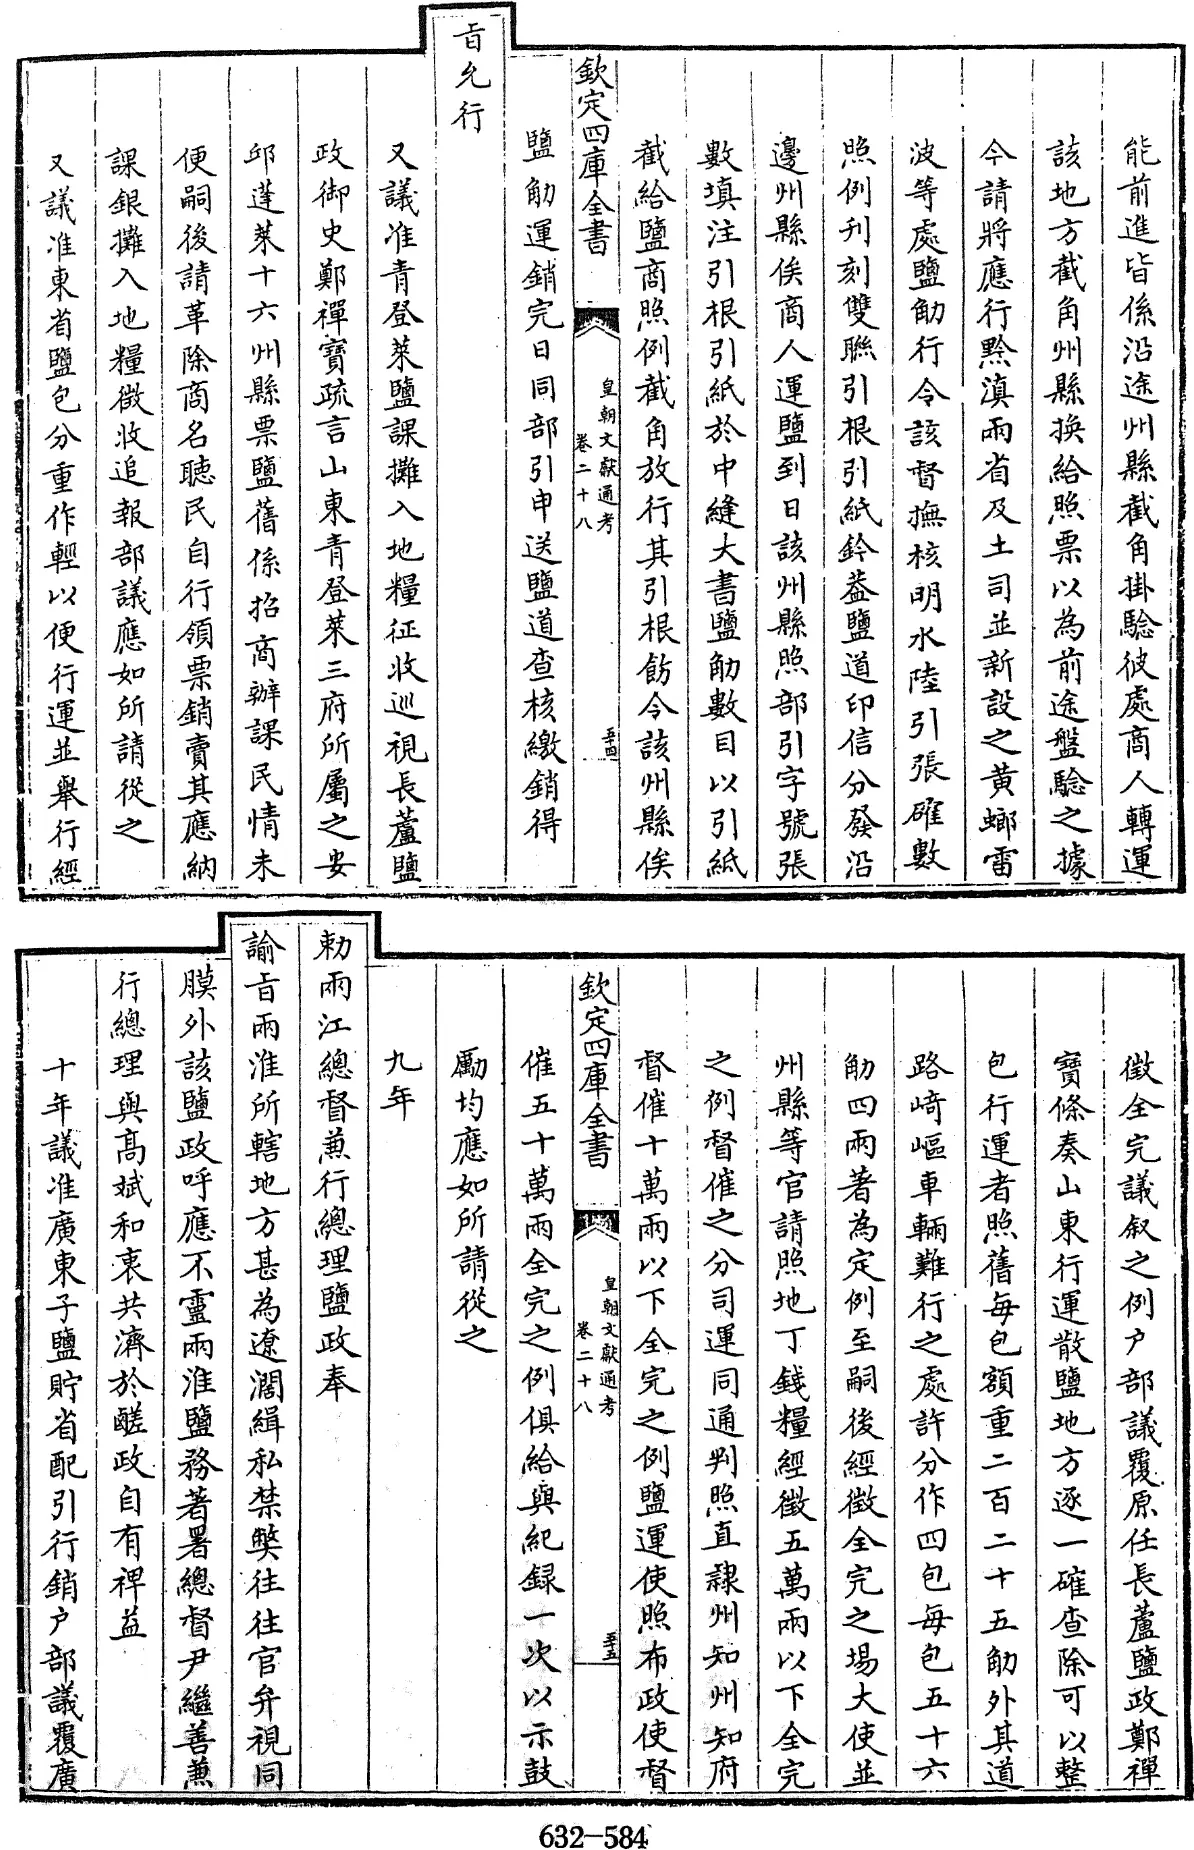 能前進皆係沿途州縣截角掛驗彼處商人轉運
該地方截角州縣換給照票以為前途盤驗之據
今請將應行黔滇兩省及土司並新設之黃螂雷
波等處鹽觔行令該督撫核明水陸引張確數
照例刋刻雙聯引根引紙鈐葢鹽道印信分發沿
邊州縣俟商人運鹽到日該州縣照部引字號張
數填注引根引紙於中縫大書鹽觔數目以引紙
截給鹽商照例截角放行其引根飭令該州縣俟
欽定四庫全書
皇朝文獻通考
卷二十八
五十四
鹽觔運銷完日同部引申送鹽道查核繳銷得
㫖允行
又議准青登萊鹽課攤入地糧征收巡視長蘆鹽
政御史鄭禪寳疏言山東青登萊三府所屬之安
邱蓬萊十六州縣票鹽舊係招商辦課民情未
便嗣後請革除商名聽民自行領票銷賣其應納
課銀攤入地糧徵收追報部議應如所請從之
又議准東省鹽包分重作輕以便行運並舉行經
徵全完議叙之例户部議覆原任長蘆鹽政鄭禪
寳條奏山東行運散鹽地方逐一確查除可以整
包行運者照舊每包額重二百二十五觔外其道
路﨑嶇車輛難行之處許分作四包每包五十六
觔四兩著為定例至嗣後經徵全完之塲大使並
州縣等官請照地丁錢糧經徵五萬兩以下全完
之例督催之分司運同通判照直隷州知州知府
督催十萬兩以下全完之例鹽運使照布政使督
欽定四庫全書
皇朝文獻通考
卷二十八
五十五
催五十萬兩全完之例俱給與紀録一次以示鼓
勵均應如所請從之
九年
勅兩江總督兼行總理鹽政奉
諭㫖兩淮所轄地方甚為遼濶緝私禁弊往往官弁視同
膜外該鹽政呼應不靈兩淮鹽務著署總督尹繼善兼
行總理與髙斌和衷共濟於鹺政自有裨益
十年議准廣東子鹽貯省配引行銷户部議覆廣
632-584